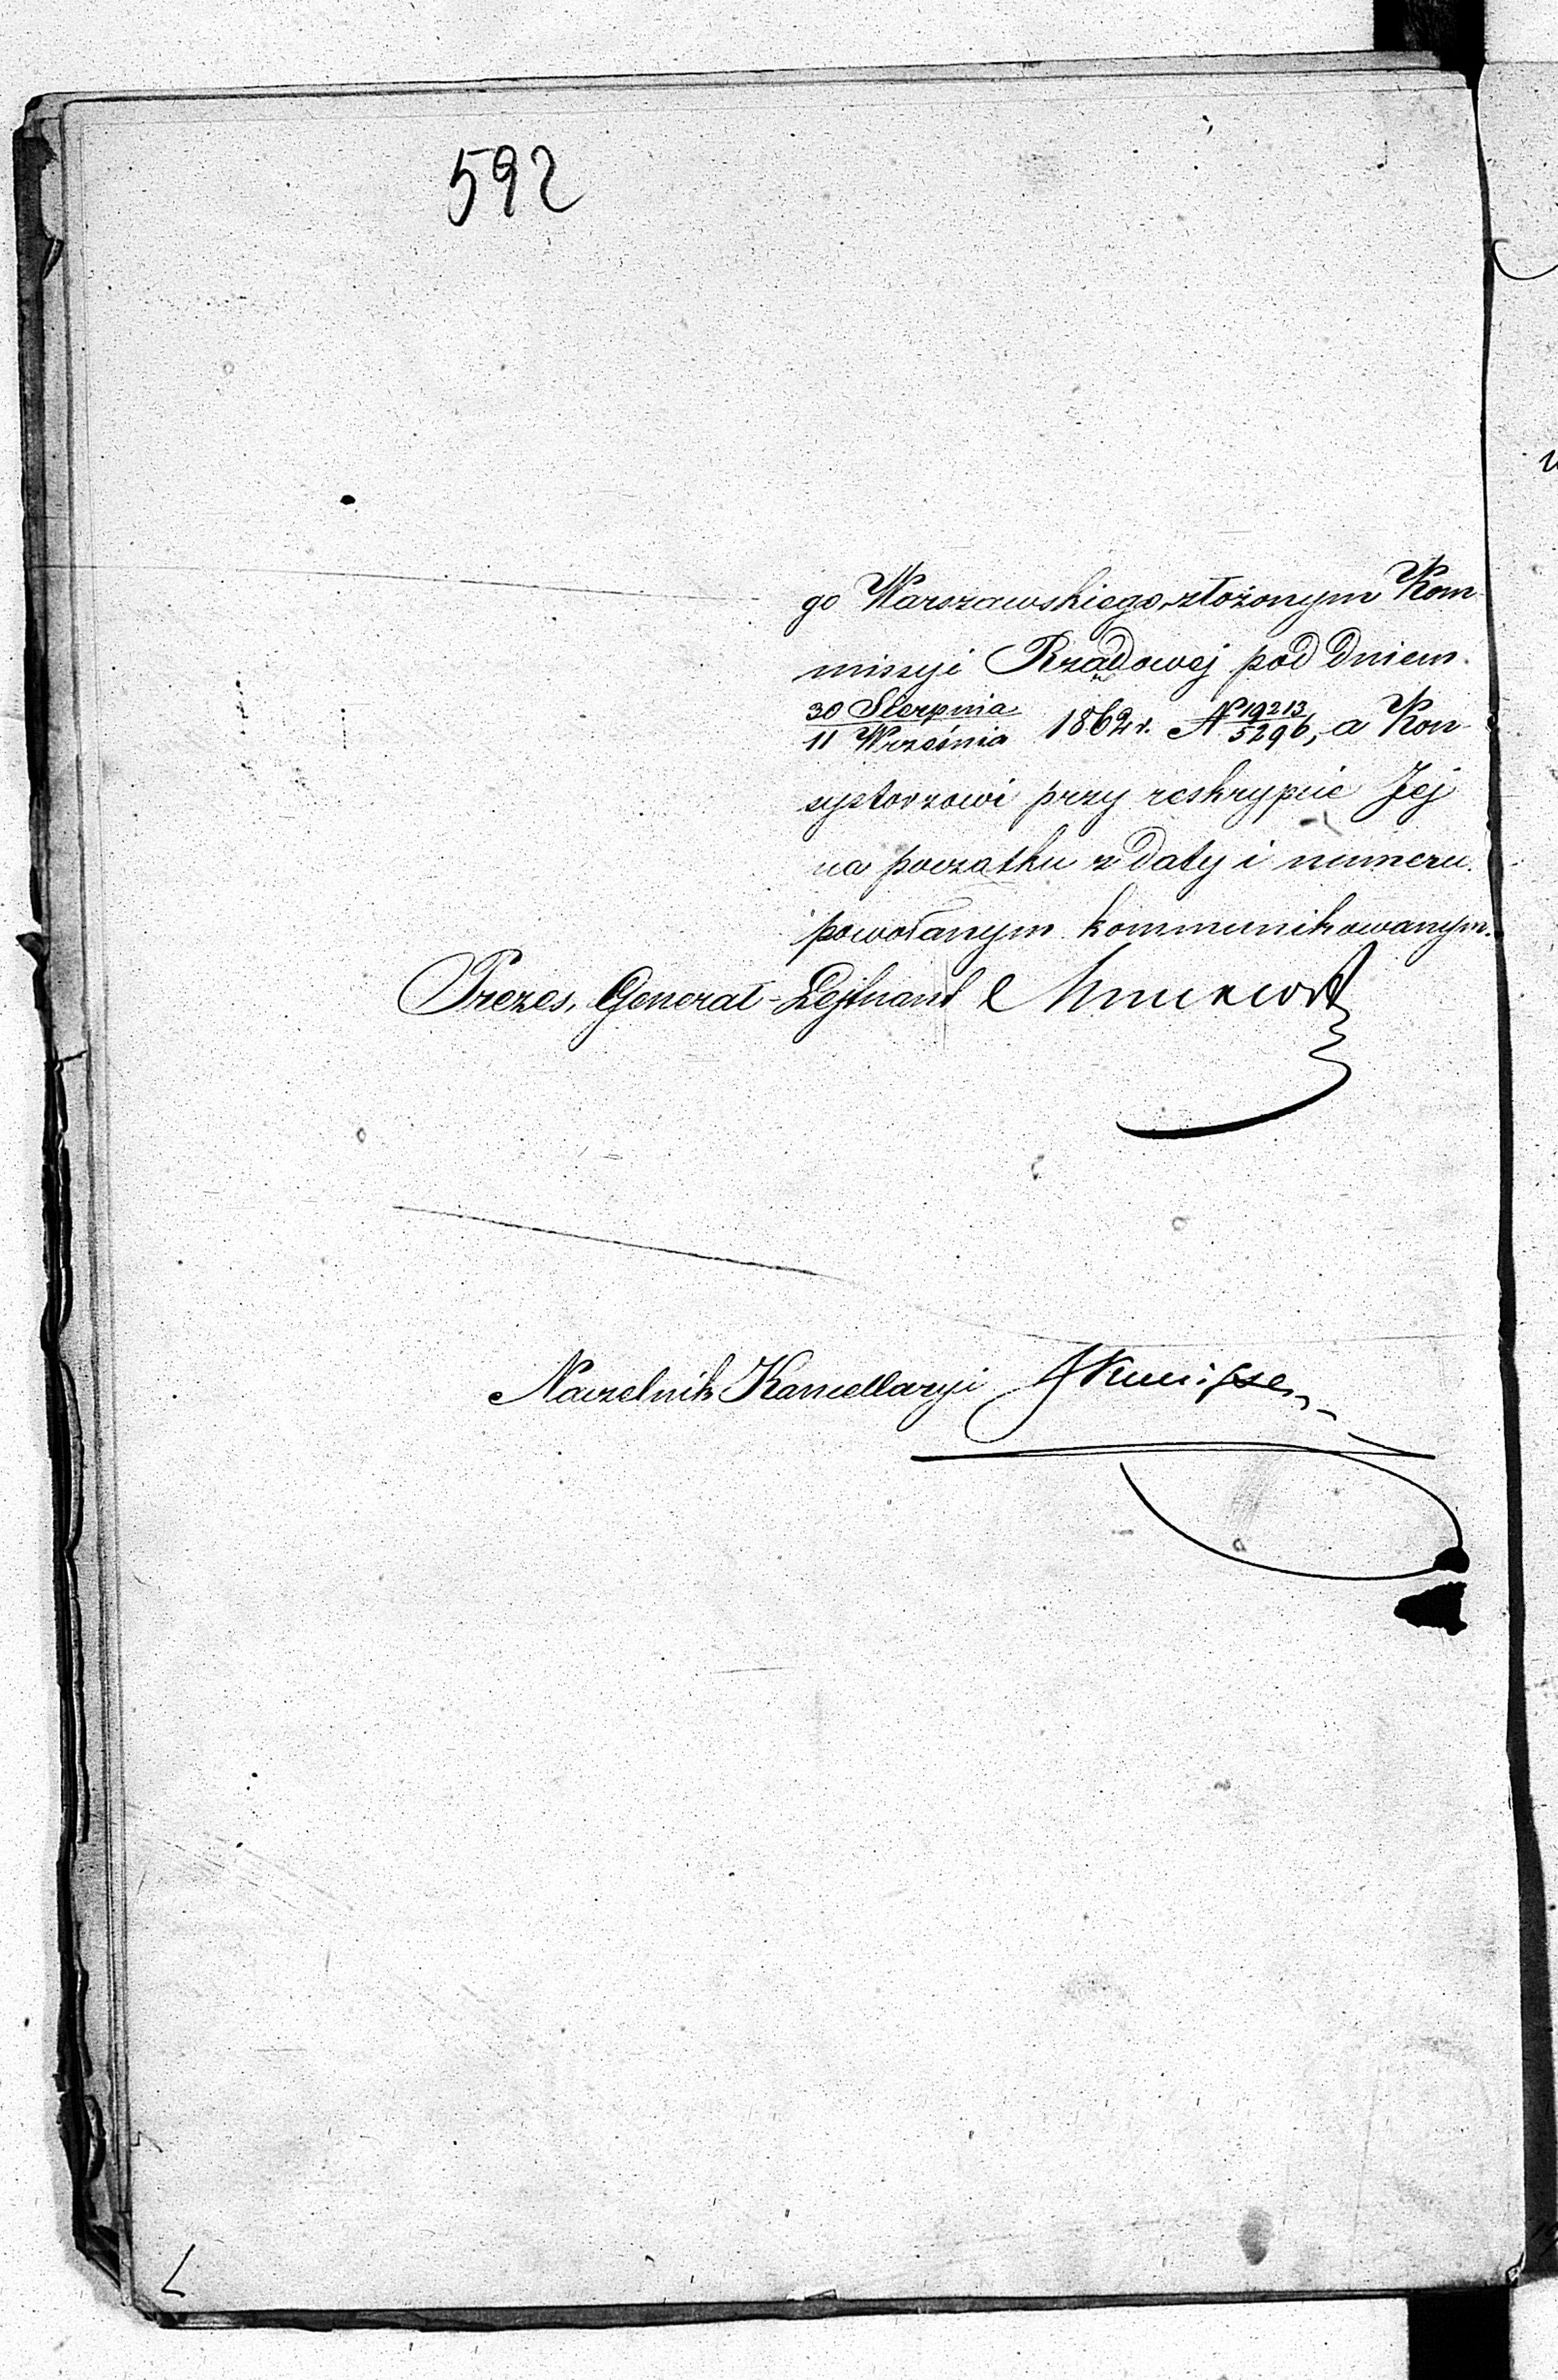 592
go Warszawskiego, złożonym Kom-
missyi Rządowej pod dniem
30 Sierpnia / 11 Września 1862 r. N 19213/5296, a Kon-
systorzowi przy reskrypcie Jej
na początku z daty i numeru
powołanym kommunikowanym.
Prezes, Generał-Lejtnant
Naczelnik Kancellaryi